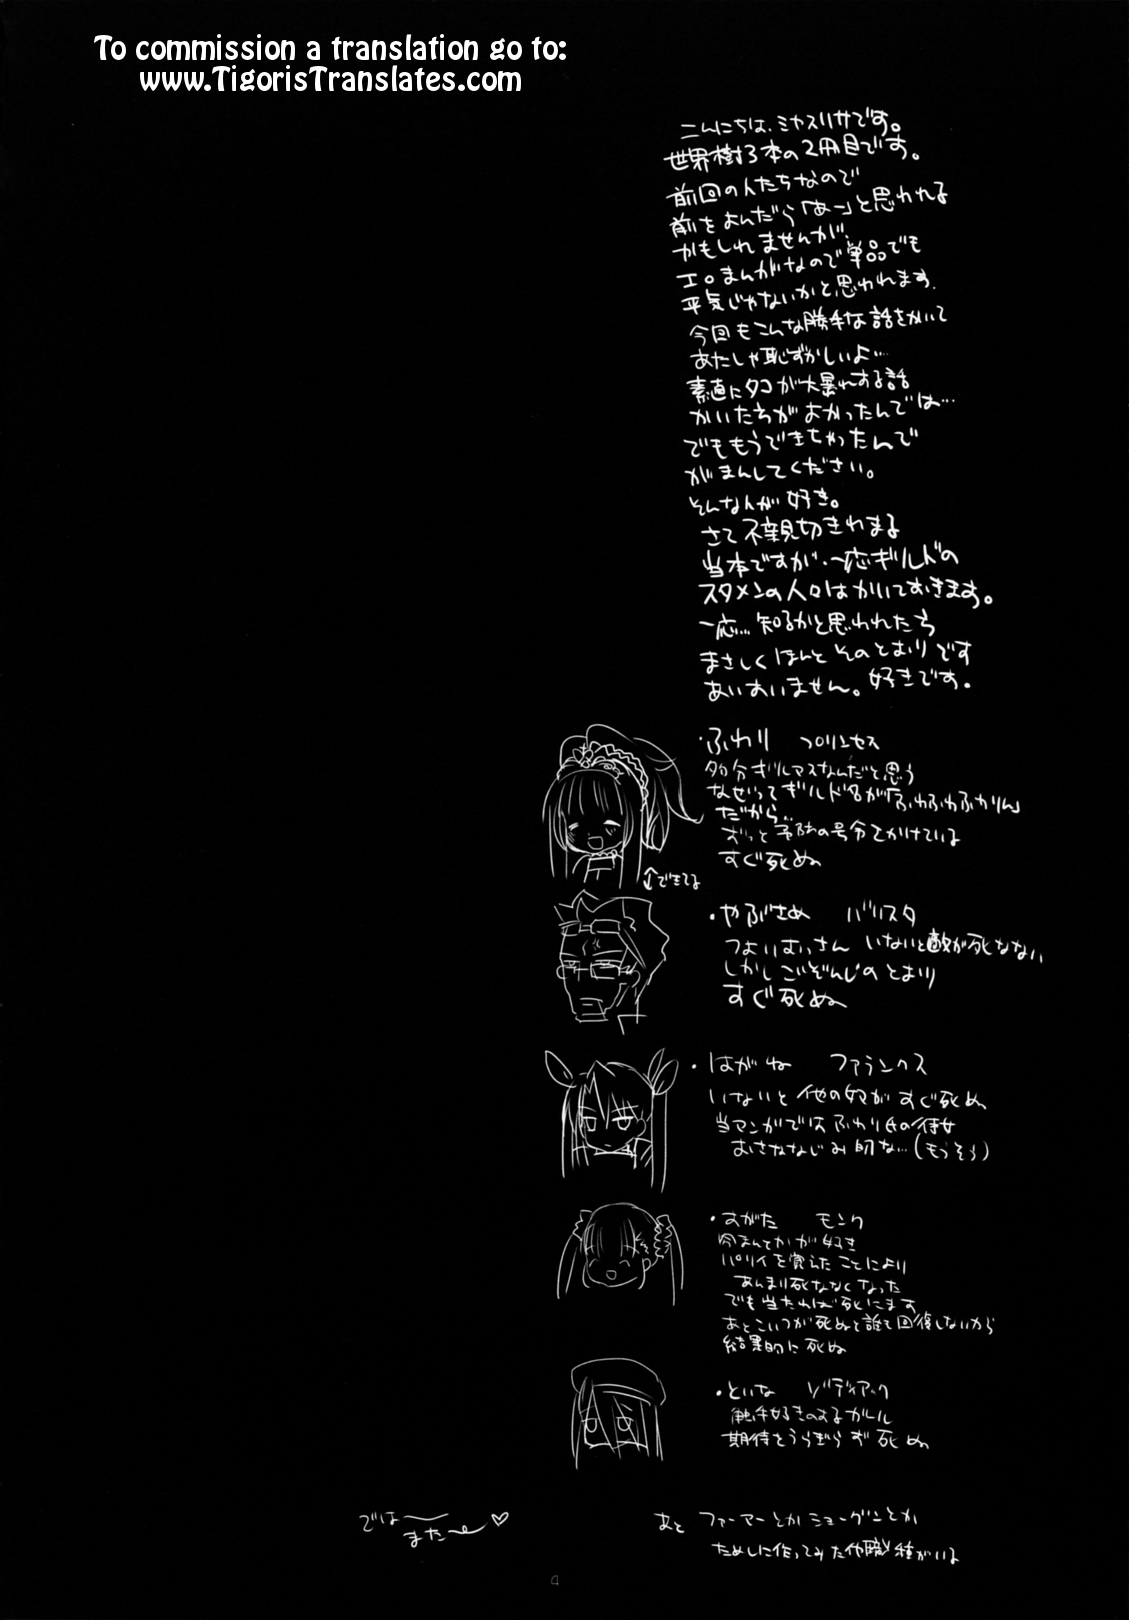 To commission a translation go to:
www.TigorisTranslates.com
こんにちは、ミヤスリサです。
世界樹3本の2冊目です。
前回の人たちなので
前をよんだら「あー」と思われる
かもしれませんが、
エロまんがなので単品でも
平気じゃないかと思われます。
今回もこんな勝手な話をかいて
あたしゃ恥ずかしいよ…
素直にタコが大暴れする話
かいたらがよかったんでは…
でももうできちゃったんで
がまんしてください。
そんなんが好き。
さて不親切きわまる
当本ですが、一応ギルドの
スタメンの人々はかいておきます。
一応…知るかと思われたら
まさしくほんとそのとおりです
あいすいません。好きです。
・ふわり プリンセス
多分ギルマスなんだと思う
なぜってギルド名が「ふわふわふわりん」
だから…
ずっと予防の号令をかけている
すぐ死ぬ
↑↓できてる
・やぶさめ バリスタ
つよいおっさん いないと敵が死なない
しかしごぞんじのとおり
すぐ死ぬ
・はがね ファランクス
いないと他の奴がすぐ死ぬ
当マンガではふわり氏の侍女
おさななじみ的な…(もうそう)
・すがた モンク
パリイを覚えたことにより
あんまり死ななくなった
でも当たれば死にます
あとこいつが死ぬと誰も回復しないから
結果的に死ぬ
・といな ゾディアック
触手好きのするガール
期待をうらぎらず死ぬ
あと ファーマーとかショーグンとか
ためしに作ってみた他職種がいる
では
また〜♡